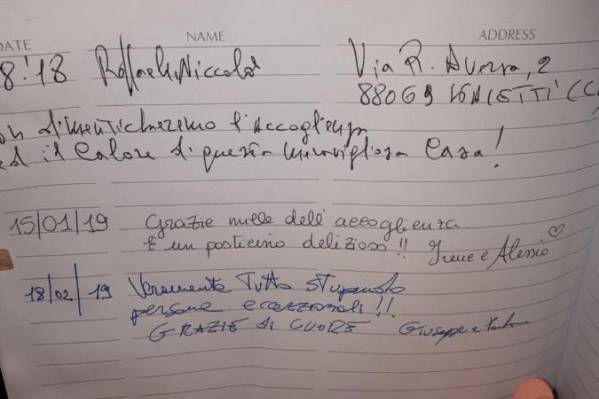 DATE NAME ADDRESS
8.'18 Raffaele Niccolò Via R. Averna, 2
88069
on dimenticheremo l'accoglienza
ed il calore di questa meravigliosa casa!
15/01/19 Grazie mille dell'accoglienza
È un posticino delizioso!! Irene e Alessio
18/02/19 Veramente Tutto stupendo
persone eccezzionali!!
GRAZIE di CUORE Giuseppe e